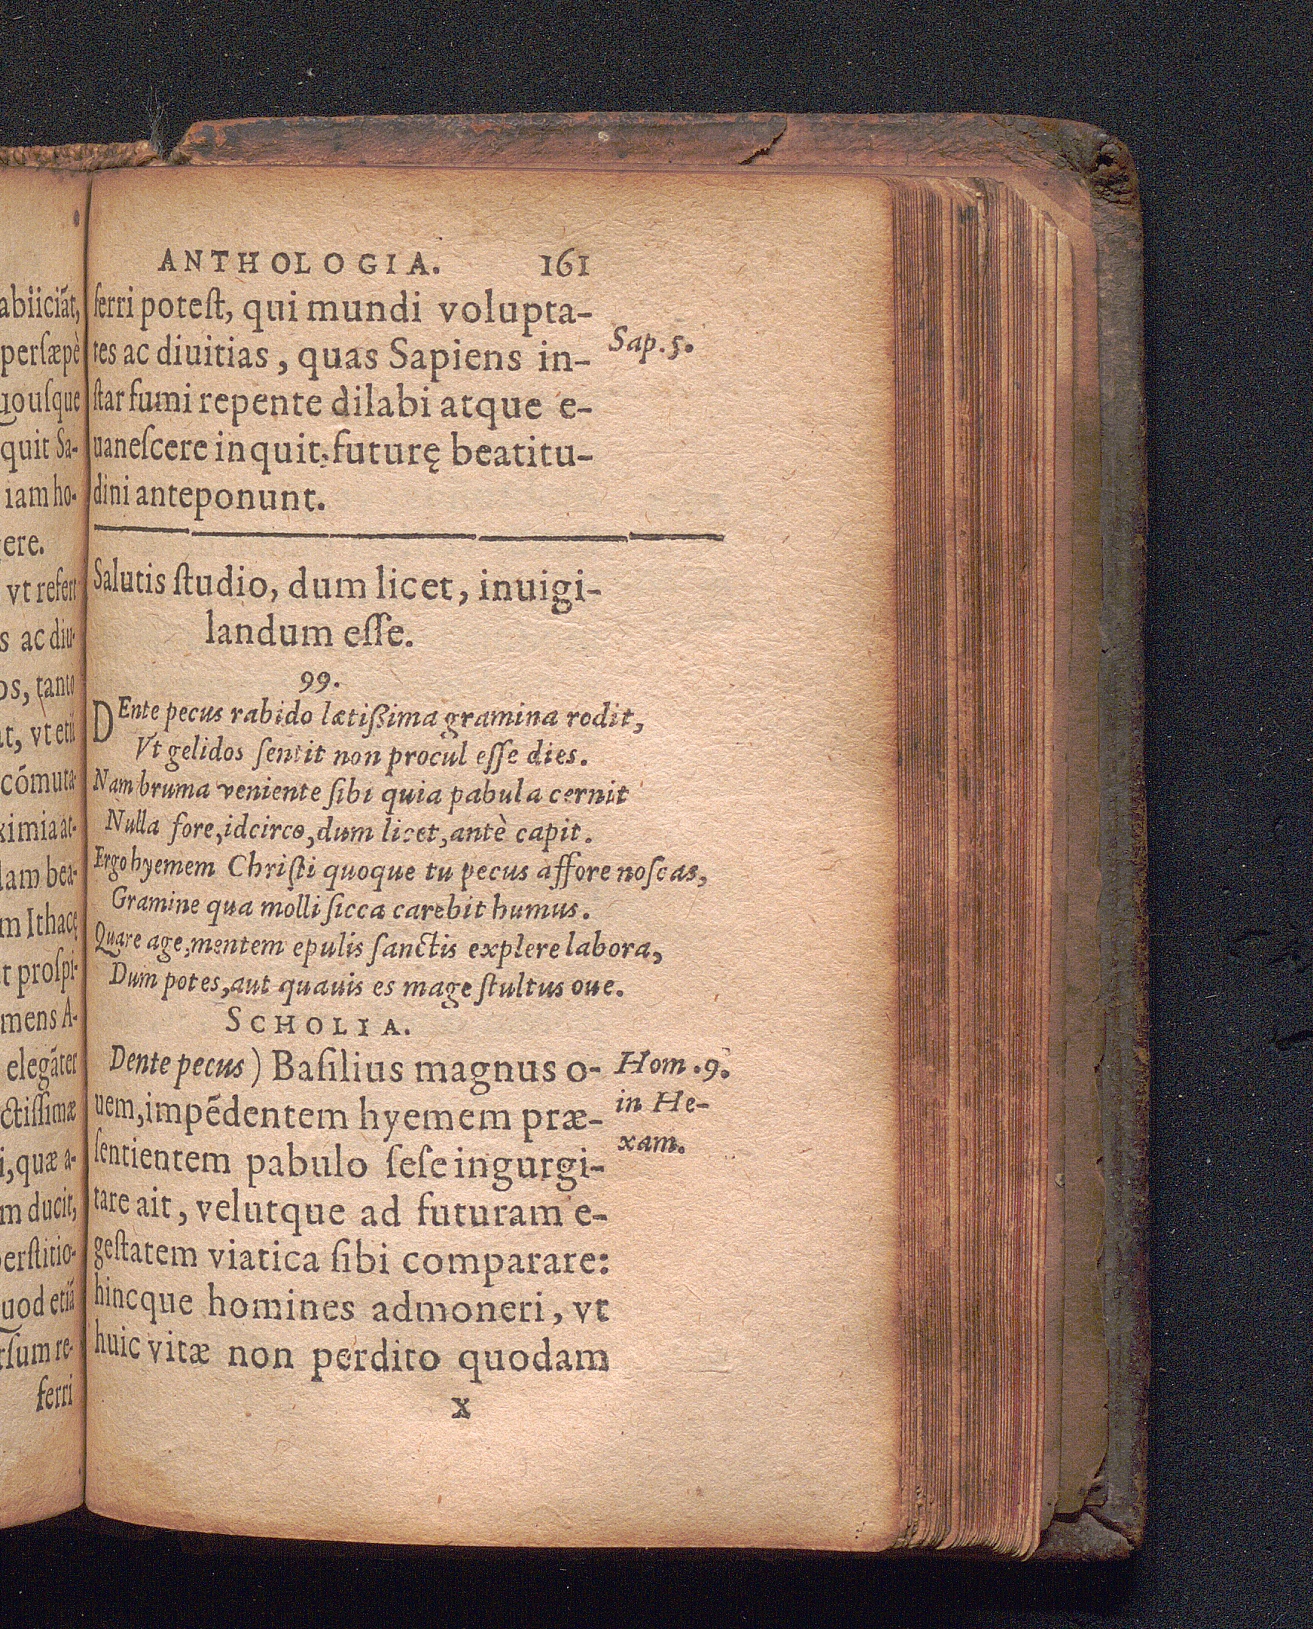 abiiciãt,
persæpè
uousque
quit Sa-
iam ho-
ere.
vt refert
s ac diu-
os, tanto
at, vt etiã
cõmuta-
ximia at-
dam bea-
m Ithacę
t prospi-
mens A-
elegãter
ctissimæ
i, quæ a-
m ducit,
erstitio-
uod etiã
rsum re-
ferri
ANTHOLOGIA. 161
ferri potest, qui mundi volupta-
tes ac diuitias, quas Sapiens in-
Sap. 5.
star fumi repente dilabi atque e-
uanescere inquit, futurę beatitu-
dini anteponunt.
Salutis studio, dum licet, inuigi-
landum esse.
99.
DEnte pecus rabido lætißima gramina rodit,
Vt gelidos sentit non procul esse dies.
Nam bruma veniente sibi quia pabula cernit
Nulla fore, idcirco, dum licet, antè capit.
Ergo hyemem Christi quoque tu pecus affore noscas,
Gramine qua molli sicca carebit humus.
Quare age, mentem epulis sanctis explere labora,
Dum potes, aut quauis es mage stultus oue.
SCHOLIA.
Dente pecus) Basilius magnus o-
uem, impẽdentem hyemem præ-
sentientem pabulo sese ingurgi-
Hom. 9.
in He-
xam.
tare ait, velutque ad futuram e-
gestatem viatica sibi comparare:
hincque homines admoneri, vt
huic vitæ non perdito quodam
x